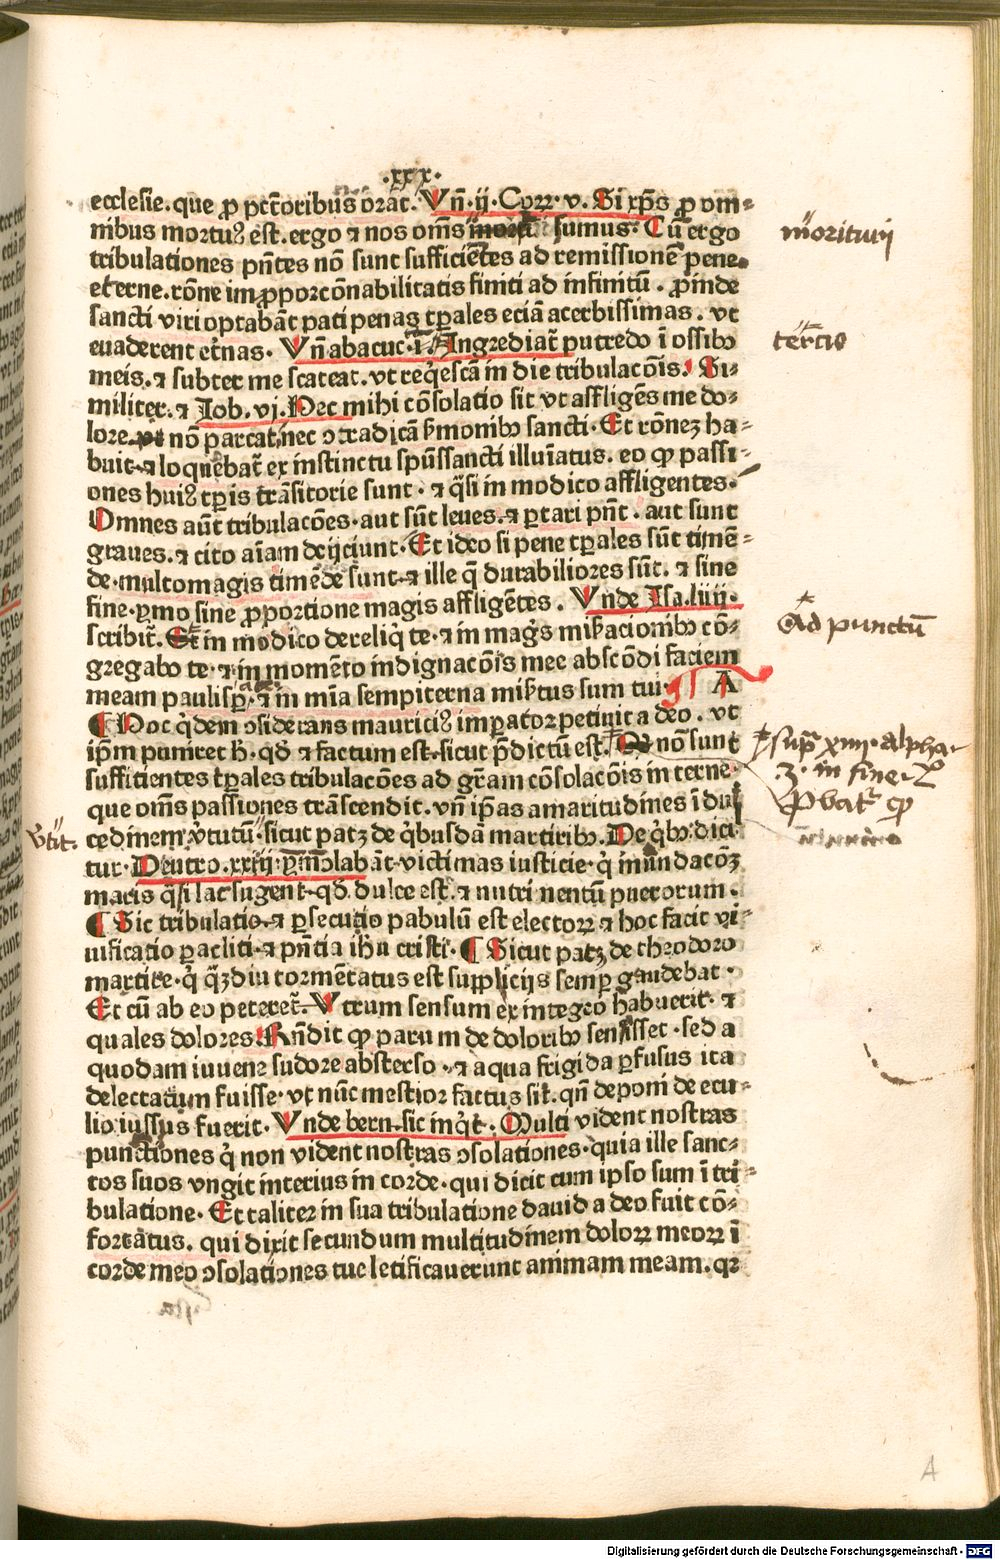 .xxx.
ecclesie. que ꝓ pctoribus orat. Vn̄. ij. Corꝝ. v. Si xp̄s ꝓ om⸗
nibus mortuꝰ est. ergo ⁊ nos om̄s sumus. Cū ergo
morituri
tribulationes pn̄tes nō sunt sufficiētes ad remissionē pene
eterne. rōne imꝓporcōnabilitatis finiti ad infinitū. ꝓinde
sancti viri optabāt pati penas tꝑales eciā acerbissimas. vt
euaderent et̄nas. Vn̄ abacuc. Ingrediat̄ putredo ī ossibꝰ
tercio
meis. ⁊ subter me scateat. vt reqͥescā in die tribulacōis. Si⸗
militer. ⁊ Job. vj. Nec mihi cōsolatio sit vt affligēs me do⸗
lore nō parcat, nec ↄtradicā ẜmonibꝰ sancti. Et rōneꝫ ha⸗
buit. ⁊ loquebat̄ ex instinctu spūssancti illuīatus. eo ꝙ passi⸗
ones huiꝰ tꝑis trāsitorie sunt. ⁊ qͣsi in modico affligentes.
Omnes aūt tribulacōes. aut sūt leues. ⁊ portari pn̄t. aut sunt
graues. ⁊ cito aīam deijciunt. Et ideo si pene tꝑales sūt timē⸗
de. multomagis timēde sunt. ⁊ ille q̄ durabiliores sūt. ⁊ sine
fine. ymo sine ꝓportione magis affligētes. Vnde Isa. liiij.
scribit̄. in modico dereliqͥ te. ⁊ in magͥs miẜacionibꝰ cō⸗
Ad punctū
gregabo te. ⁊ in momēto indignacōis mee abscōdi faciem
meam paulisꝑ. ⁊ in mīa sempiterna miẜtus sum tui. A
¶ Hoc qͥdem ↄsiderans mauriciꝰ imperator petiuit a deo. vt
ip̄m puniret h. qd̄ ⁊ factum est. sicut p̄dictū est. nō sunt
supͣ xiiij. alpha⸗
sufficientes tꝑales tribulacōes ad gr̄am cōsolacōis interne.
ꝫ. in fine.
que om̄s passiones trāscendit. vn̄ ip̄as amaritudines ī dul
ꝓbat̄ ꝙ
v̄tit.
cedinem v̄tutū. sicut patꝫ de qͥbusdā martiribꝰ. De qͥbꝰ dici
tur. Deutro. xxxiij. victimas iusticie. qͥ inundacōꝫ
maris qͣsi lac sugent. qd̄ dulce est. ⁊ nutrimentū puerorum.
¶ Sic tribulatio. ⁊ ꝑsecutio pabulū est electorꝝ ⁊ hoc facit vi⸗
uificatio paracliti. ⁊ pn̄tia ihu cristi. ¶ Sicut patꝫ de theodoro
martire. qͥ qͣꝫdiu tormētatus est supplicijs semꝑ gaudebat.
Et cū ab eo peteret̄. Vtrum sensum ex integro habuerit. ⁊
quales dolores. Rn̄dit ꝙ parum de doloribꝰ sensisset. sed a
quodam iuuene sudore absterso. ⁊ aqua frigida ꝑfusus ita
delectatum fuisse. vt nūc mestior factus sit. qn̄ deponi de ecu⸗
lio iussus fuerit. Vnde bern. sic inqͥt. Multi vident nostras
punctiones qͥ non vident nostras ↄsolationes. quia ille sanc⸗
tos suos vngit interius in corde. qui dicit cum ipso sum ī tri⸗
bulatione. Et taliter in sua tribulatione dauid a deo fuit cō⸗
fortatus. qui dixit secundum multitudinem dolorꝝ meorꝝ ī
corde meo ↄsolationes tue letificauerunt animam meam. qꝛ
A
Digitalisierung gefördert durch die Deutsche Forschungsgemeinschaft - DFG